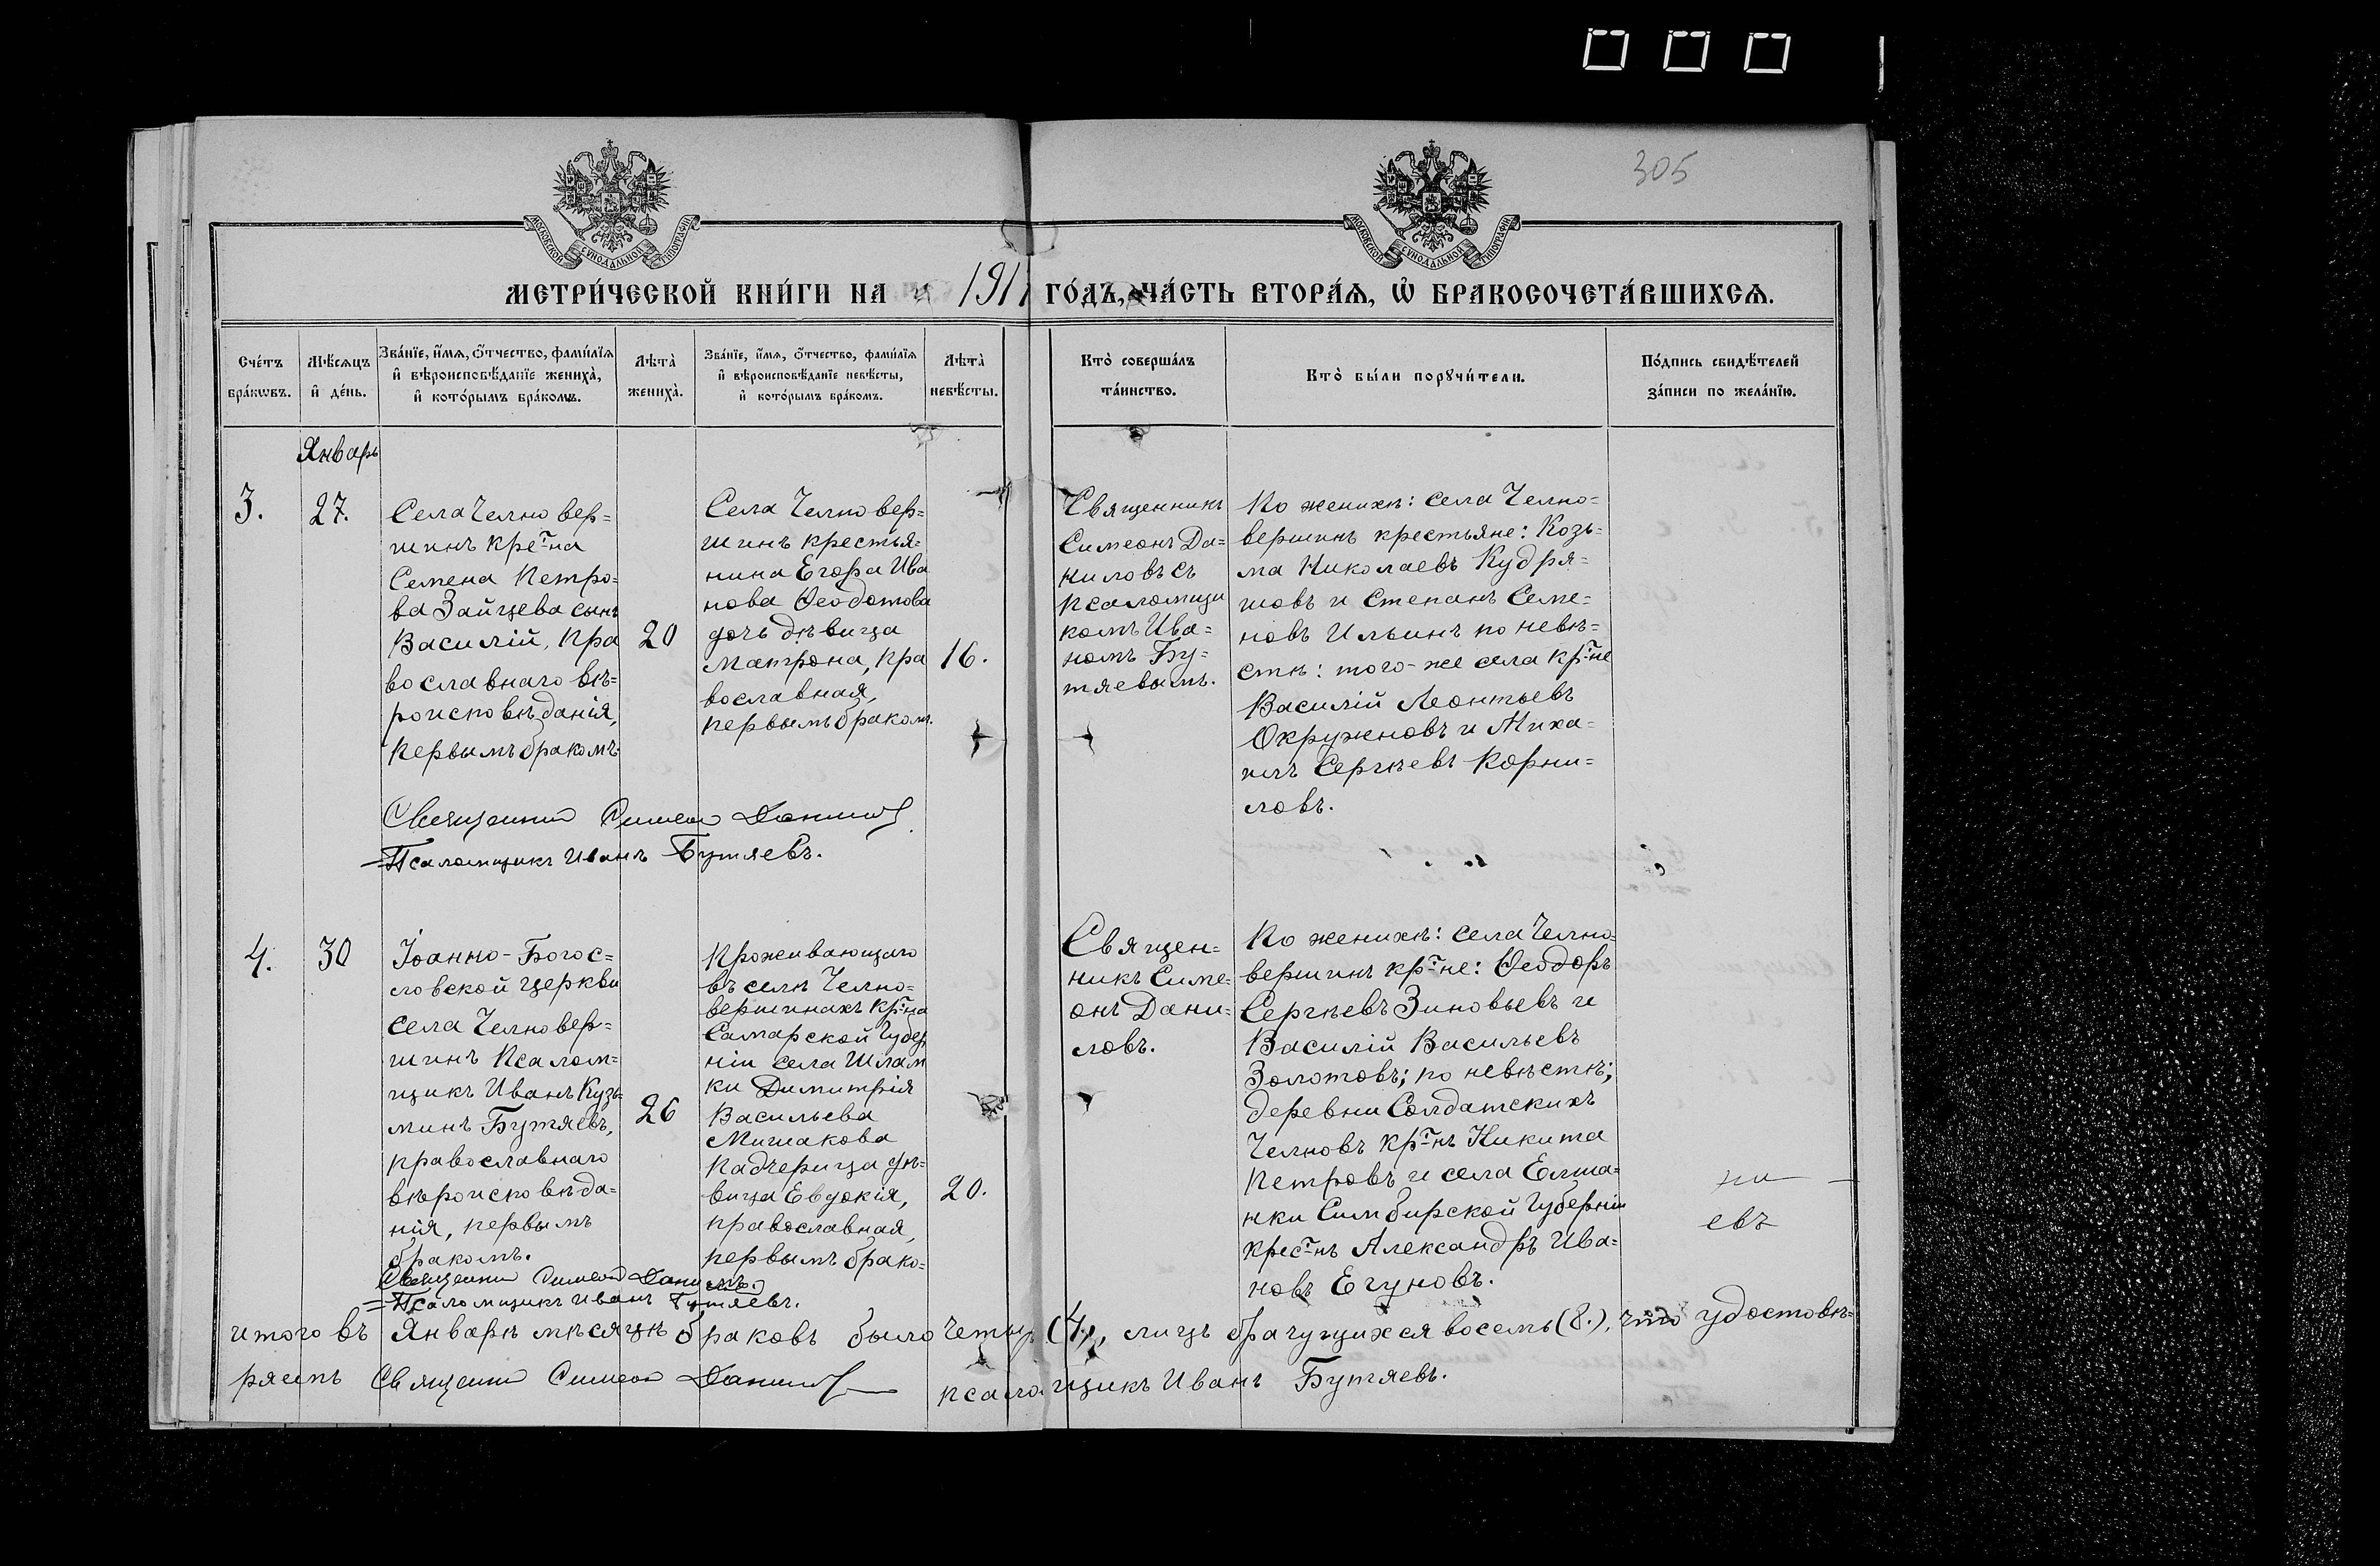 305
МОСКОВСКОЙ СУНОДАЛЬНОЙ ТИПОГРАФІИ
МОСКОВСКОЙ СУНОДАЛЬНОЙ ТИПОГРАФІИ
МЕТРИ́ЧЕСКОЙ КНИ́ГИ НА 1911 ГО́ДЪ, ЧА́СТЬ ВТОРА́Ѧ, Ѡ҆ БРАКОСОЧЕТА́ВШИХСѦ.
Сче́тъ
бра́кѡвъ.
Мѣ́сѧцъ
и҆ де́нь.
Зва́нїе, и҆́мѧ, ѻ҆́тчество, фамѝлїѧ
и҆ вѣроисповѣ́данїе жениха̀,
и҆ кото́рымъ бра́комъ.
Лѣта̀
жениха̀.
Зва́нїе, и҆́мѧ, ѻ҆́тчество, фамѝлїѧ
и҆ вѣроисповѣ́данїе невѣ́сты,
и҆ кото́рымъ бра́комъ.
Лѣта̀
невѣ́сты.
Кто̀ соверша́лъ
та́инство.
Кто̀ бы́ли порꙋчи́тели.
По́дпись свидѣ́телей
за́писи по жела́нїю.
Январь
3.
27.
Села Челновер=
шинъ кре-т-на
Семена Петро=
ва Зайцева сынъ
Василій, пра
вославнаго вѣ=
роисповѣданія,
первымъ бракомъ
20
Села Челновер=
шинъ крестья=
нина Егора Ива
нова Ѳеодотова
дочь дѣвица
Матрона, пра
вославная,
первымъ бракомъ.
16.
Священникъ
Симеонъ Да=
ниловъ съ
псаломщи
комъ Ива=
номъ Бу=
тяевымъ.
По женихѣ: села Челно=
вершинъ крестьяне: Козь=
ма Николаевъ Кудря=
шовъ и Степанъ Семе=
новъ Ильинъ по невѣ=
стѣ: того-же села кр-т-не
Василій Леонтьевъ
Окружновъ и Миха=
илъ Сергѣевъ Корни=
ловъ.
Священник Симеон Данилов
Псаломщикъ Иванъ Бутяевъ.
4.
30
Іоанно-Богос=
ловской церкви
села Челновер=
шинъ Псалом=
щикъ Иванъ Кузь=
минъ Бутяевъ,
православнаго
вѣроисповѣда=
нія, первымъ
бракомъ.
26
Проживающаго
въ селѣ Челно=
вершинахъ кр-т-на
Самарской Губер
ніи села Шлам
ки Димитрія
Васильева
Мишакова
падчерица дѣ=
вица Евдокія,
православная,
первымъ брако=
мъ.
20.
Священ=
никъ Симе=
онъ Дани=
ловъ.
По женихѣ: села Челно=
вершинъ кр-т-не: Ѳеодоръ
Сергѣевъ Зиновьевъ и
Василій Васильевъ
Золотовъ; по невѣстѣ;
деревни Солдатскихъ
Челновъ кр-т-нъ Никита
Петровъ и села Елша=
нки Симбирской Губерніи
крес-т-нъ Александръ Ива=
новъ Егуновъ.
евъ
Священник Симеон Данилов
Псаломщикъ Иванъ Бутяевъ.
итого въ Январѣ мѣсяцѣ браковъ было четыр (4), лицъ брачущихся восемь (8.), что удостовѣ=
ряетъ Священник Симеон Данилов псаломщикъ Иванъ Бутяевъ.